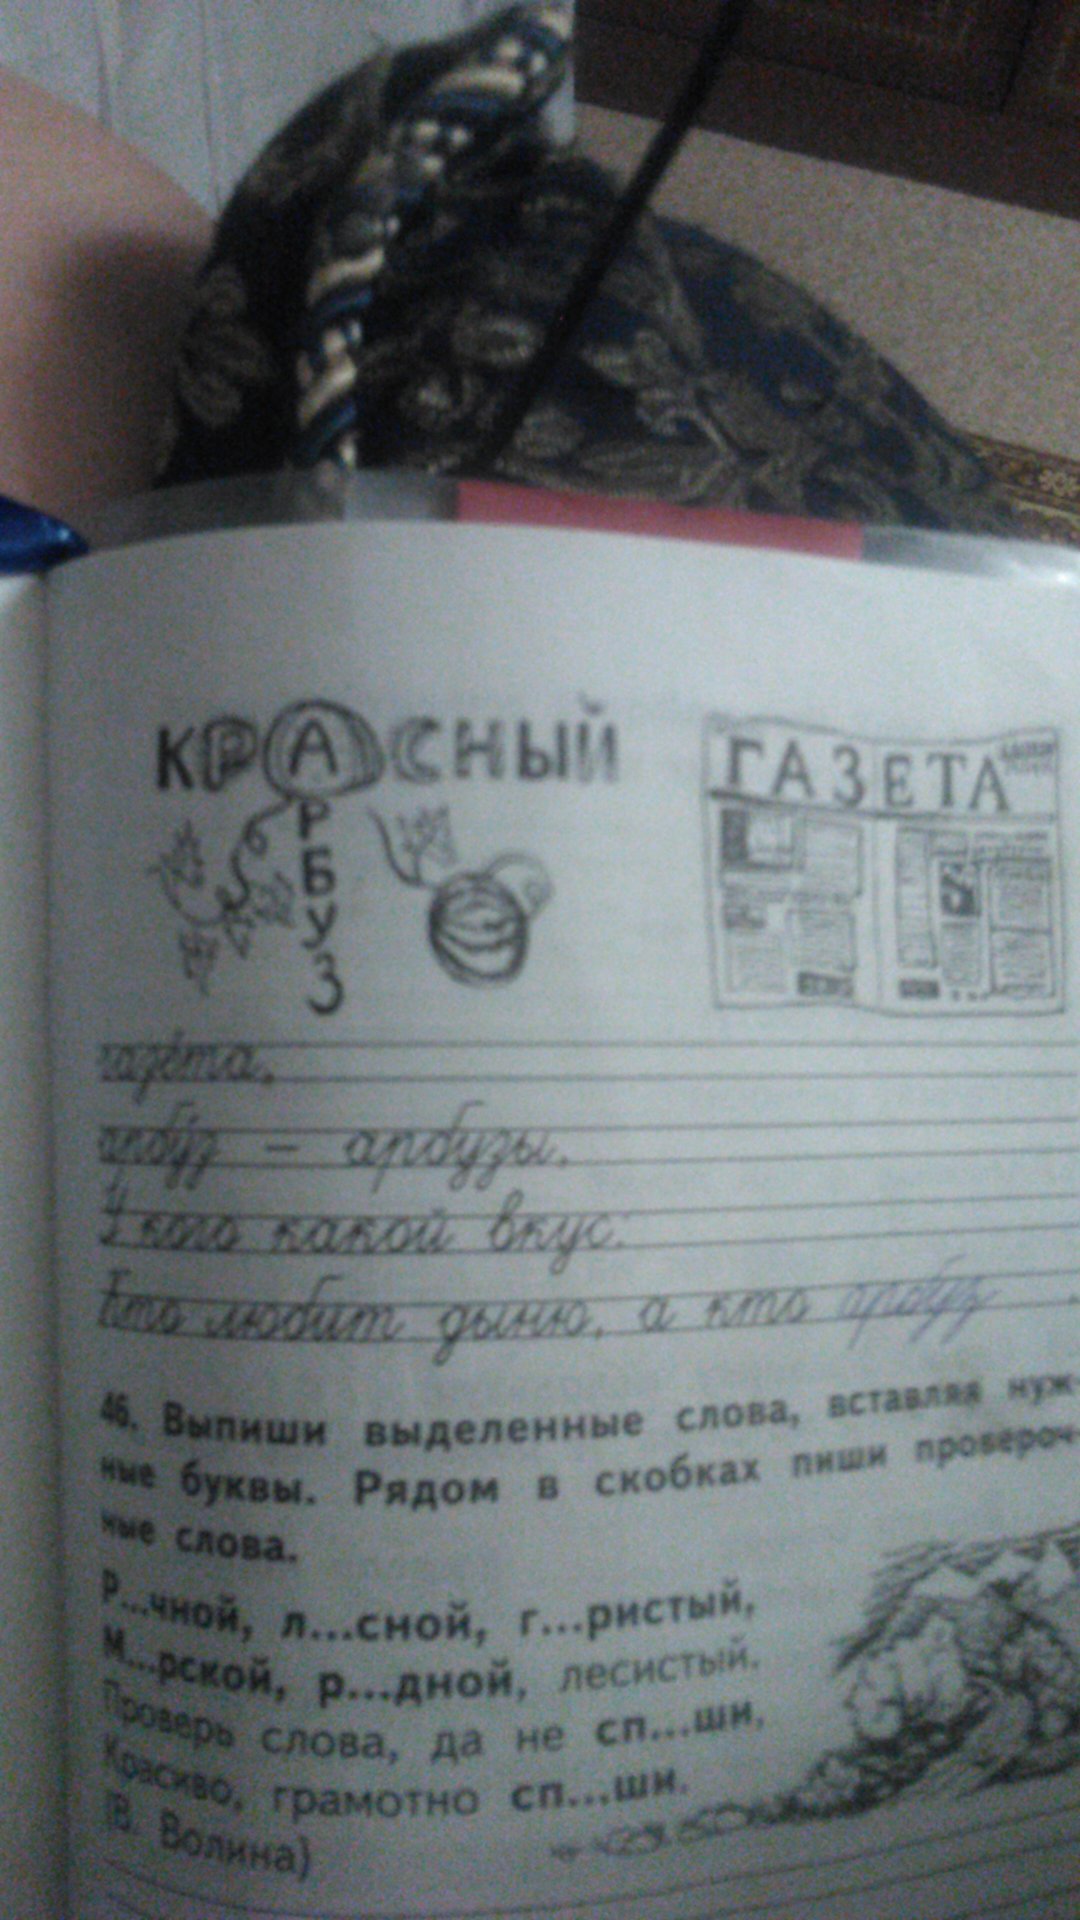 КРАСНЫЙ
АРБУЗ
ГАЗЕТА
газе́та,
арбу́з – арбузы.
У кого какой вкус:
Кто любит дыню, а кто арбуз.
46. Выпиши выделенные слова, вставляя нуж-
ные буквы. Рядом в скобках пиши провероч-
ные слова.
Р...чной, л...сной, г...ристый,
М...рской, р...дной, лесистый.
Проверь слова, да не сп...ши,
Красиво, грамотно сп...ши.
(В. Волина)